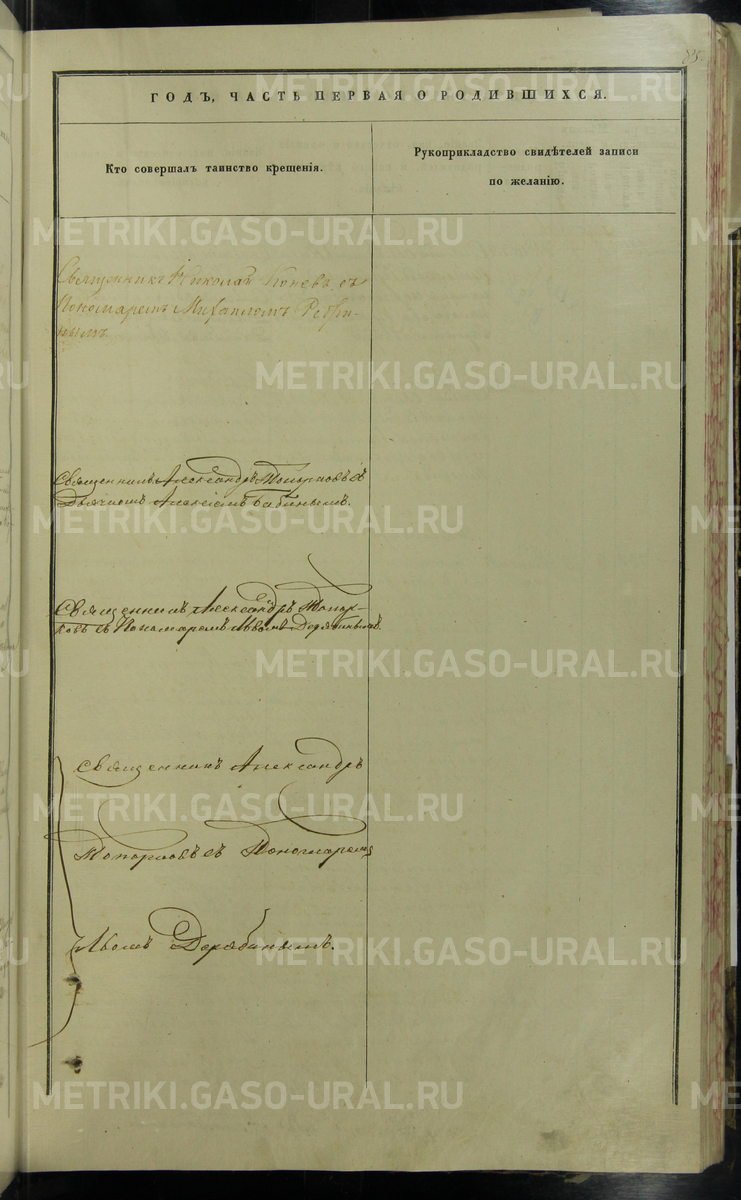 85.
ГОДЪ, ЧАСТЬ ПЕРВАЯ О РОДИВШИХСЯ.
Кто совершалъ таинство крещенія.
Рукоприкладство свидѣтелей записи
по желанію.
Священникъ Николай Коневъ съ
Пономаремъ Михаиломъ
Священникъ Александръ Топорковъ съ
Дьячкомъ Алексіемъ Бабинымъ.
Священникъ Александръ Топор-
ковъ съ Пономаремъ Львомъ Дерябинымъ.
Священникъ Александръ
Топорковъ съ Пономаремъ
Львомъ Дерябинымъ.
METRIKI.GASO-URAL.RU